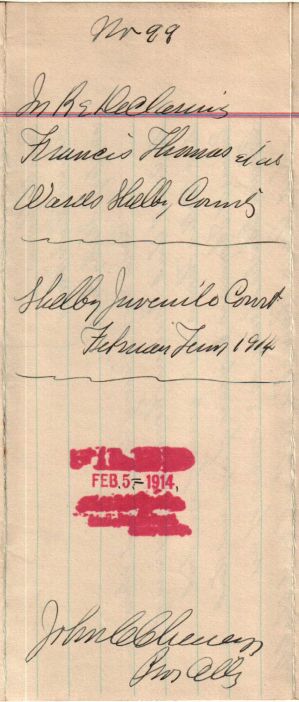 No 99
In Re Declaring
Francis Thomas et al
Wards Shelby County
Shelby Juvenile Court
February Term 1914
FILED
FEB. 5 - 1914
John C Cheney
Pros Atty